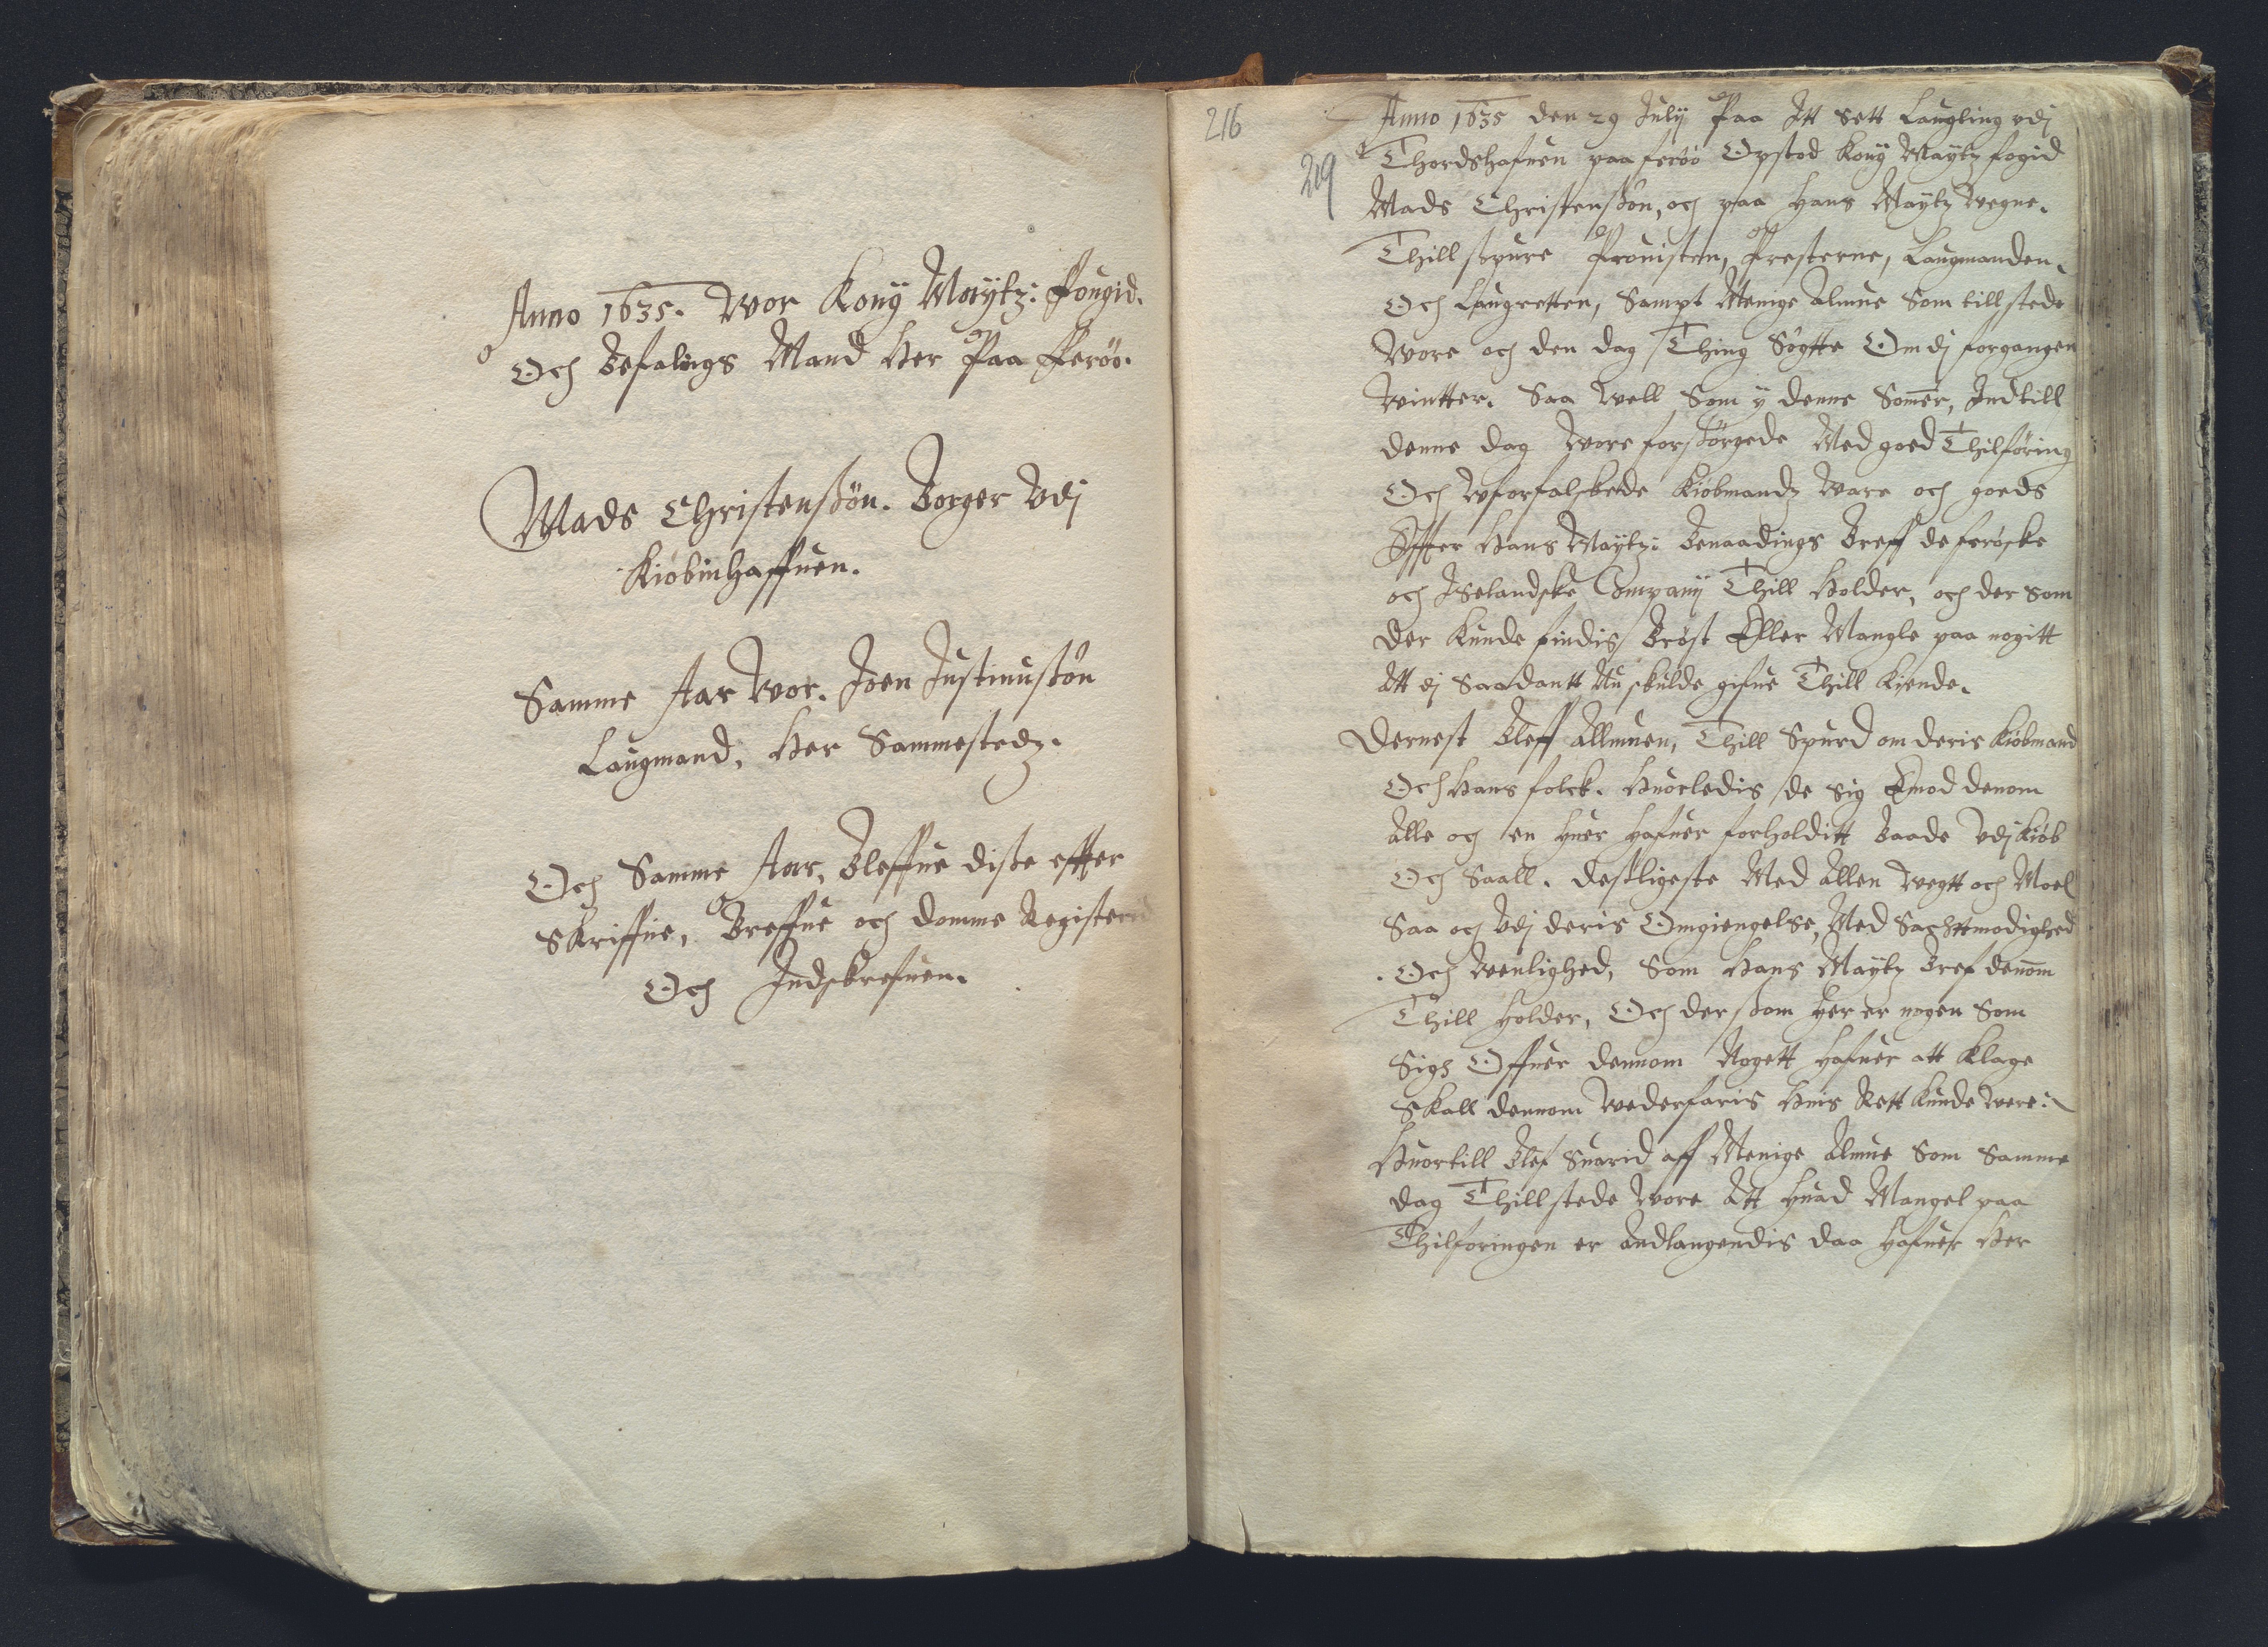 Anno 1635. Wor Kong Maytz: Fougid.
Och Befalings Mand Her Paa Ferøø.
Mads Christensßøn. Borger Vdj
Kiøbinhaffuen.
Samme Aar Wor. Joen Justinusßøn
Laugmand, Her Sammestedz.
Och Samme Aar, Bleffue disße effter
Skriffne, Breffue och Domme Registerid
Och Indskrefuen.
216
219
Anno 1635 den 29 Julij Paa Itt Sett Laugting vdj
Thordshafuen paa ferøø Opstod Kong Maytz fogid
Mads Christensßøn, och paa Hans Maytz Vegne.
Thillspure Prouisten, Presterne, Laugmanden.
Och Laugretten, Sampt Menige Almue Som tillstede
Wore och den dag Thing Søgtte Om dj forgangen
Wintter. Saa Well Som y denne Somer, Indtill
denne dag Wore forsørgede Med goed Thilføring
Och Wforfalskede Kiøbmandz Ware och goeds
Effter Hans Maytz: Benaadings Breff de ferøske
och Iselandske Company Thill Holder, och der Som
der Kunde findis Brøst Eller Mangle paa nogitt
Att dj Saadantt Nu skulde gifue Thill Kiende.
Dernest Bleff Allmuen, Thill Spurd om deris Kiøbmand
Och Hans folck. Huorledis de Sig Emod denom
Alle och en Huer Hafuer forholditt Baade Vdj Kiøb
Och Saall. desligeste Med Allen Wegtt och Moel
Saa och Vdj deris Omgiengelse, Med Sachttmodighed
Och Wenlighed, Som Hans Maytz Bref denom
Thill Holder, Och dersom Her er nogen Som
Sig Offuer dennom Nogett Hafuer att Klage
Skall dennom Wederfaris Huis Rett Kunde Were:
Huortill Blef Suarid aff Menige Almue Som Samme
dag Thillstede Wore Att Huad Mangel paa
Thilføringen er Andlangendis daa Hafuer Her